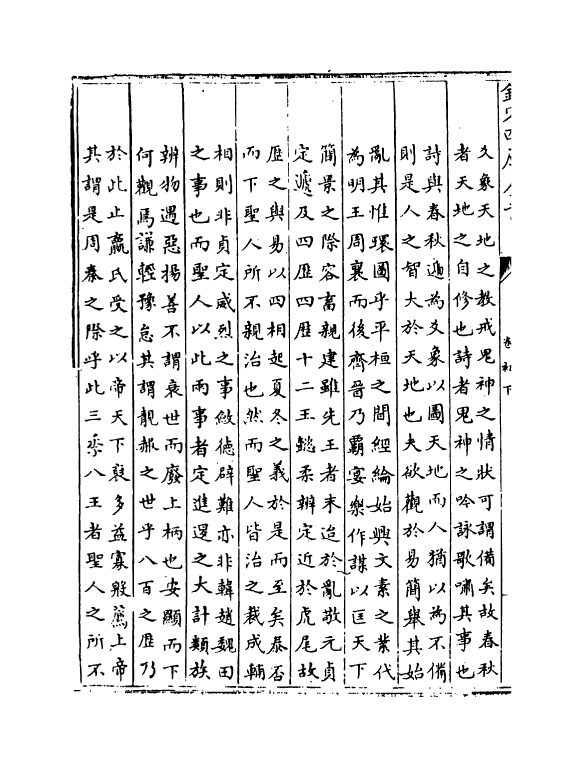 欽定四庫全書
卷初下
爻象天地之教戒鬼神之情狀可謂備矣故春秋
者天地之自修也詩者鬼神之吟詠歌嘯其事也
詩與春秋遞為爻象以圖天地而人猶以為不備
則是人之智大於天地也夫欲觀於易簡舉其始
亂其惟環圖乎平桓之間經綸始興文素之業代
為明王周襄而後齊晉乃霸宴樂作謀以匡天下
簡景之際容畜親建雖先王者未迨於亂敬元貞
定遞及四厯四厯十二王懿柔辨定近於虎尾故
厯之與易以四相起夏冬之義於是而至矣泰否
而下聖人所不親治也然而聖人皆治之裁成輔
相則非貞定威烈之事斂德辟難亦非韓趙魏田
之事也而聖人以此兩事者定進退之大計類族
辨物遏惡揚善不謂衰世而廢上柄也安顯而下
何觀焉謙輕豫怠其謂靚赧之世乎八百之厯乃
於此止嬴氏受之以帝天下裒多益寡殷薦上帝
其謂是周秦之際乎此三爻八王者聖人之所不